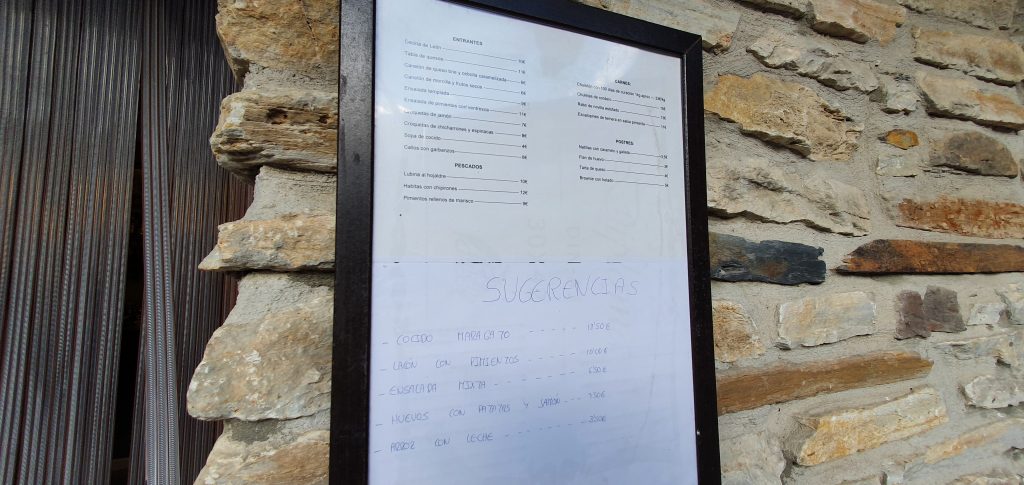 ENTRANTES
Cecina de León
Tabla de quesos 11€
Canelón de queso brie y cebolla caramelizada 6€
Canelón de morcilla y frutos secos 6€
Ensalada templada 9€
Ensalada de pimientos con ventresca 11€
Croquetas de jamón 7€
Croquetas de chicharrones y espinacas 8€
Sopa de cocido 4€
Callos con garbanzos 8€
PESCADOS
Lubina al hojaldre 10€
Habitas con chipirones 12€
Pimientos rellenos de marisco 9€
CARNES
Chuletón con 100 días de curación
Chuletas de cordero
Rabo de novillo estofado
Escalopines de ternera en salsa pimienta
POSTRES
Natillas con caramelo y galleta
Flan de huevo
Tarta de queso
Brownie con helado 5€
SUGERENCIAS
- COCIDO MARAGATO
- LACÓN CON PIMIENTOS
- ENSALADA MIXTA - - - - - - - 6'50€
- HUEVOS CON PATATAS Y JAMÓN
- ARROZ CON LECHE